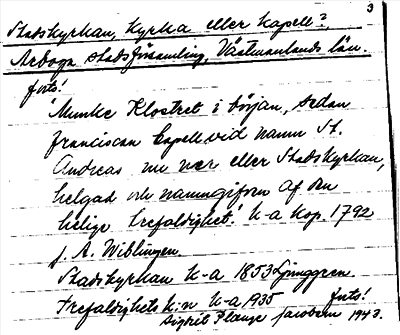 3
Stadskyrkan, kyrka eller kapell?,
Arboga stadsförsamling, Västmanlands län.
forts!
"Munke Klostret i början, sedan
franciscan Capell vid namn St.
Andreas nu vær eller Stadskyrkan,
helgad och namngifven af den
helige trefaldighet." k-a kop. 1792
J. A. Wiblingen.
Stadskyrkan k-a 1853 Ljunggren.
Trefaldighets k:a k-a 1935 forts!
Sigrit Plange Jacobsen 1943.